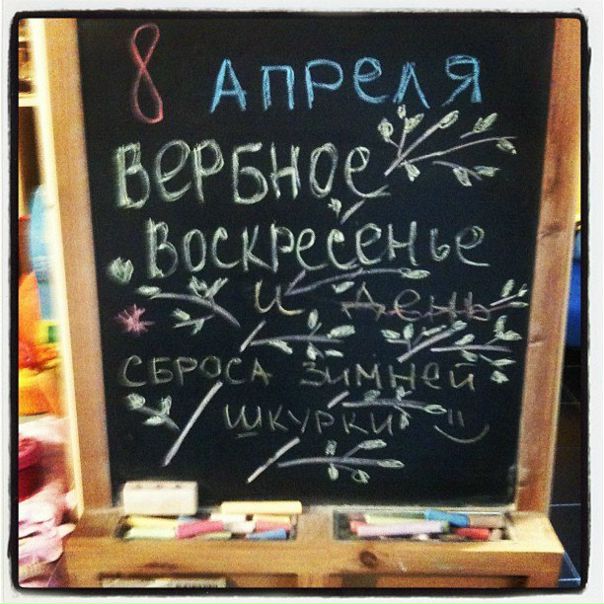 8 АПРЕЛЯ
ВЕРБНОЕ
ВОСКРЕСЕНЬЕ
И ДЕНЬ
СБРОСА ЗИМНЕЙ
ШКУРКИ ")